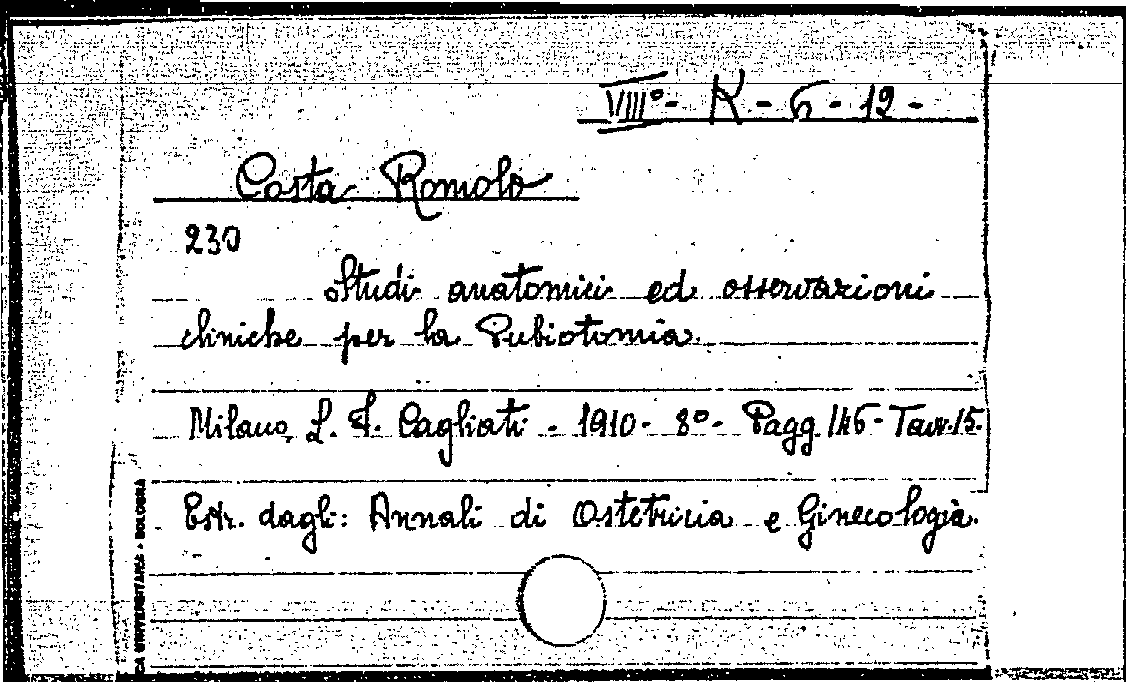 VIII°- K - 6 - 19 -
Costa Romolo
230
Studi anatomici ed osservazioni
cliniche per la Pubiotomia.
Milano, L. F. Cogliati - 1910 - 8° - Pagg. 146 - Tavv. 15.
Estr. dagli: Annali di Ostetricia e Ginecologia.
CA UNIVERSITARIA - BOLOGNA